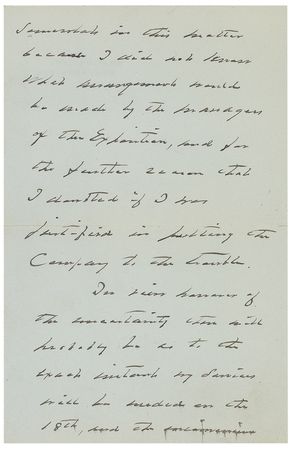 Somewhat in this matter
because I did not know
what arrangements would
be made by the managers
of the Exposition, and for
the further reason that
I doubted if I was
justified in putting the
Company to the trouble.
In view however of
the uncertainty
probably be as to the
exact instant my services
will be needed on the
18th, and the